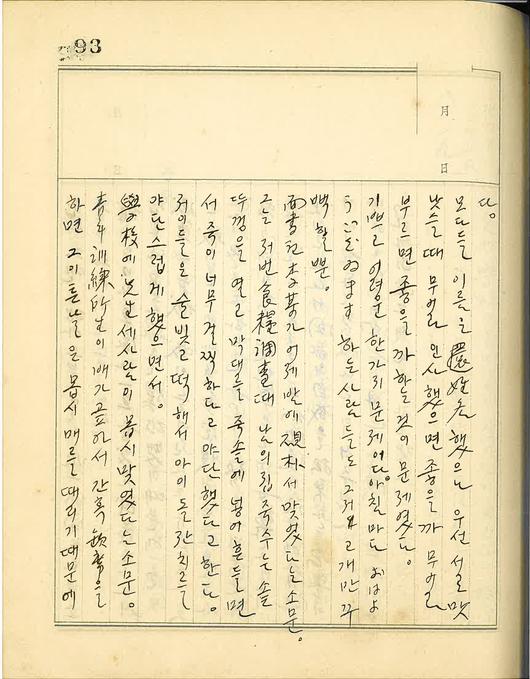 93
月
日
당
모다들 이름을 還姓名 했으니 우선 서로 맛
낫슬때 무어라 인사했으면 좋을까 무어라
부르면 좋을까 할것이 문제였다。
기쁘고 어려운 한가지 문제이다。아침마다 おはよ
うございます 하든 사람들도 그저 고개만 꾸
벅 할뿐。
面書記 李某가 어제밤에 砚朴서 맞었다는 소문。
그는 저번 食糧調査때 남의집 죽수는 솥
뚜껑을 열고 막대를 죽솥에 넣어 흔들면
서 죽이 너무 걸찍하다고 야단했다고 한다。
저이들은 술빗고 떡해서 아이 돌잔치를
야단스럽게 했으면서。
學校에 선생 세사람이 몹시 맞었다는 소문。
靑年訓練所生이 배가 곺아서 간혹 缺席을
하면 그 이튼날은 몹시 매를 때리기때문에